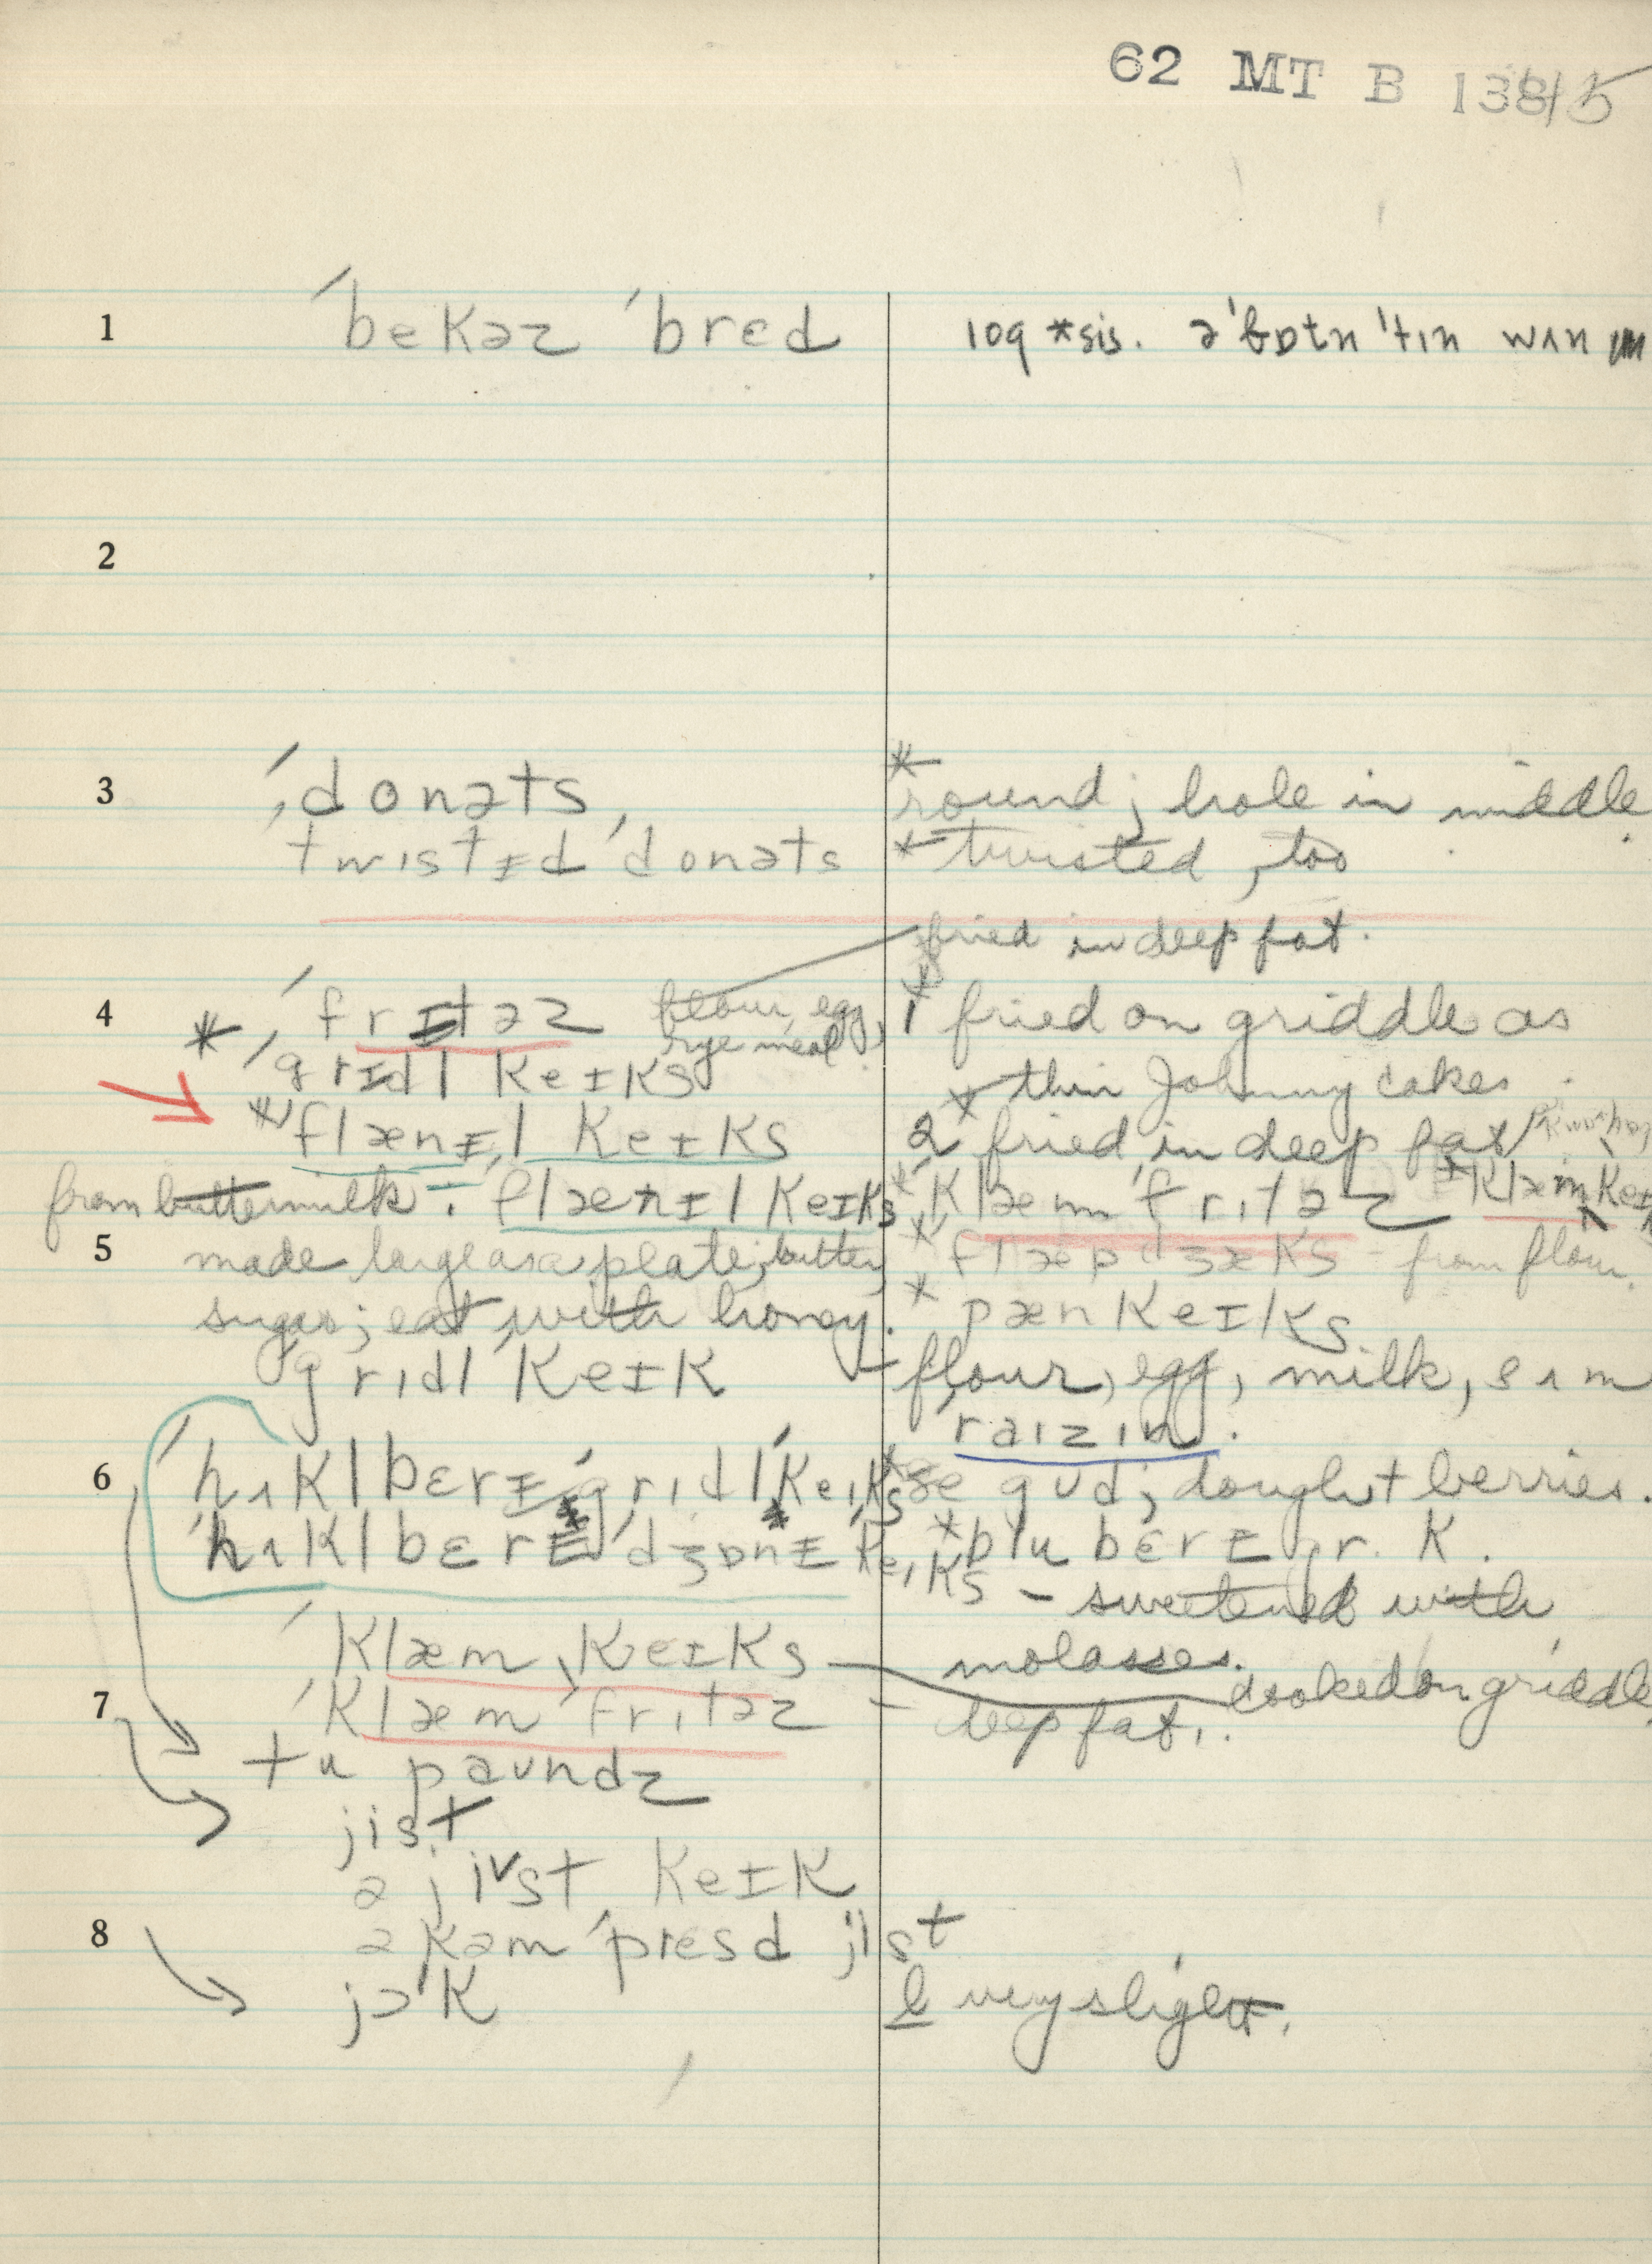 62 MT B 138/5
1 ˈbekəz ˈbred
ə ˈbɒtn ˈtɪn wʌn
2
3 ˈdonəts * round; hole in middle
ˈtwɪstɪd ˈdonəts * twisted, too
fried in deep fat.
4 * ˈfrɪtəz flour, egg, 1 fried on griddle as
rye meal,
ˈgrɪdl keɪks * thin Johnny cakes.
* ˈflænɪl keɪks 2 fried in deep fat
from buttermilk. flænɪl keɪks * klæm ˈfrɪtəz * klæm keɪ
5 made large as a plate; butter, * flæpdʒæks - from flour.
sugar; eat with honey. * pænkeɪks
ˈgrɪdl keɪk - flour, egg, milk, sʌm
ˈraɪzɪn.
6 ˈhʌklberɪ ˈgrɪdl ˈkeɪks gʊd; dough + berries.
ˈhʌklbɛrɪ ˈdʒɒnɪ keɪks * blubɛrɪ gr. k.
- sweetened with
ˈklæm ˌkeɪks molasses.
cooked on griddle
7 ˈklæm ˈfrɪtəz - deep fat.
tu paʊndz
jist
ə jist keɪk
8 ə kəmˈpresd jist
jɔk l very slight.